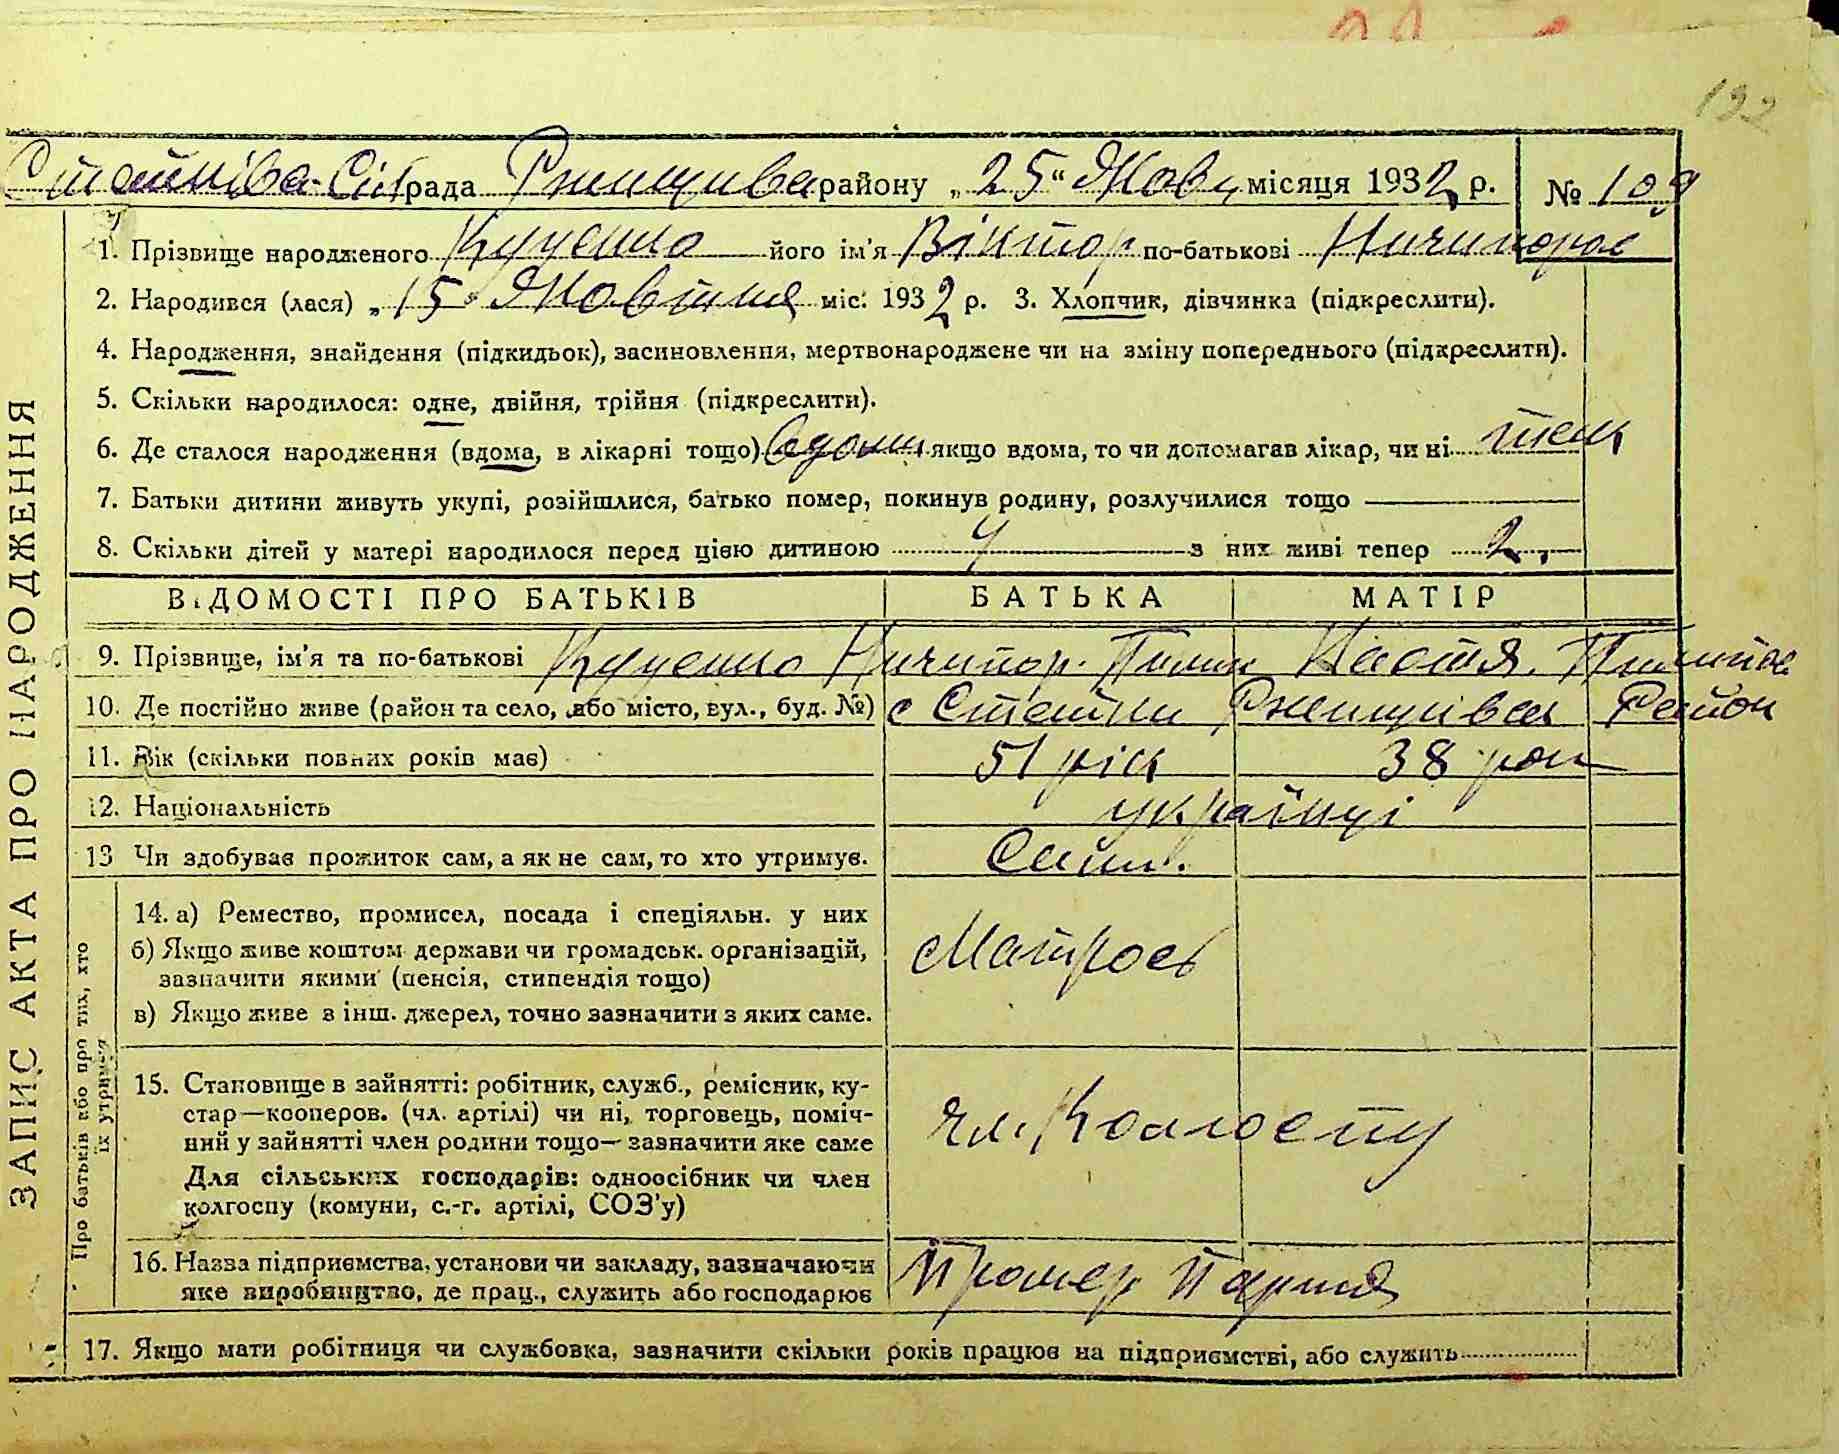 122
Стайківа Сіл рада Ржищива району „25“ Жов. місяця 1932 р. № 109
1. Прізвище народженого Куценко його ім'я Віктор по-батькові Ничипоров
2. Народився (лася) „15“ Жовтня міс. 1932 р. 3. Хлопчик, дівчинка (підкреслити).
4. Народження, знайдення (підкидьок), засиновлення, мертвонароджене чи на зміну попереднього (підкреслити).
5. Скільки народилося: одне, двійня, трійня (підкреслити).
6. Де сталося народження (вдома, в лікарні тощо) вдома якщо вдома, то чи допомагав лікар, чи ні
7. Батьки дитини живуть укупі, розійшлися, батько помер, покинув родину, розлучилися тощо
8. Скільки дітей у матері народилося перед цією дитиною 4 з них живі тепер 2.
ВІДОМОСТІ ПРО БАТЬКІВ БАТЬКА МАТІР
9. Прізвище, ім'я та по-батькові Куценко Ничипор. Настя
10. Де постійно живе (район та село, або місто, вул., буд. №) с Стайки Ржищівсь Район
11. Вік (скільки повних років має) 51 рік 38 рок
12. Національність українці
13 Чи здобуває прожиток сам, а як не сам, то хто утримує. Сам.
14. а) Ремество, промисел, посада і спеціяльн. у них
б) Якщо живе коштом держави чи громадськ. організацій,
зазначити якими (пенсія, стипендія тощо)
Матрось
в) Якщо живе з інш. джерел, точно зазначити з яких саме.
15. Становище в зайнятті: робітник, служб., ремісник, ку-
стар—кооперов. (чл. артілі) чи ні, торговець, поміч-
ний у зайнятті член родини тощо— зазначити яке саме
чл. Колгоспу
Для сільських господарів: одноосібник чи член
колгоспу (комуни, с.-г. артілі, СОЗ'у)
16. Назва підприємства, установи чи закладу, зазначаючи
яке виробництво, де прац., служить або господарює
17. Якщо мати робітниця чи службовка, зазначити скільки років працює на підприємстві, або служить
ЗАПИС АКТА ПРО НАРОДЖЕННЯ
Про батьків або про тих, хто
їх утримує